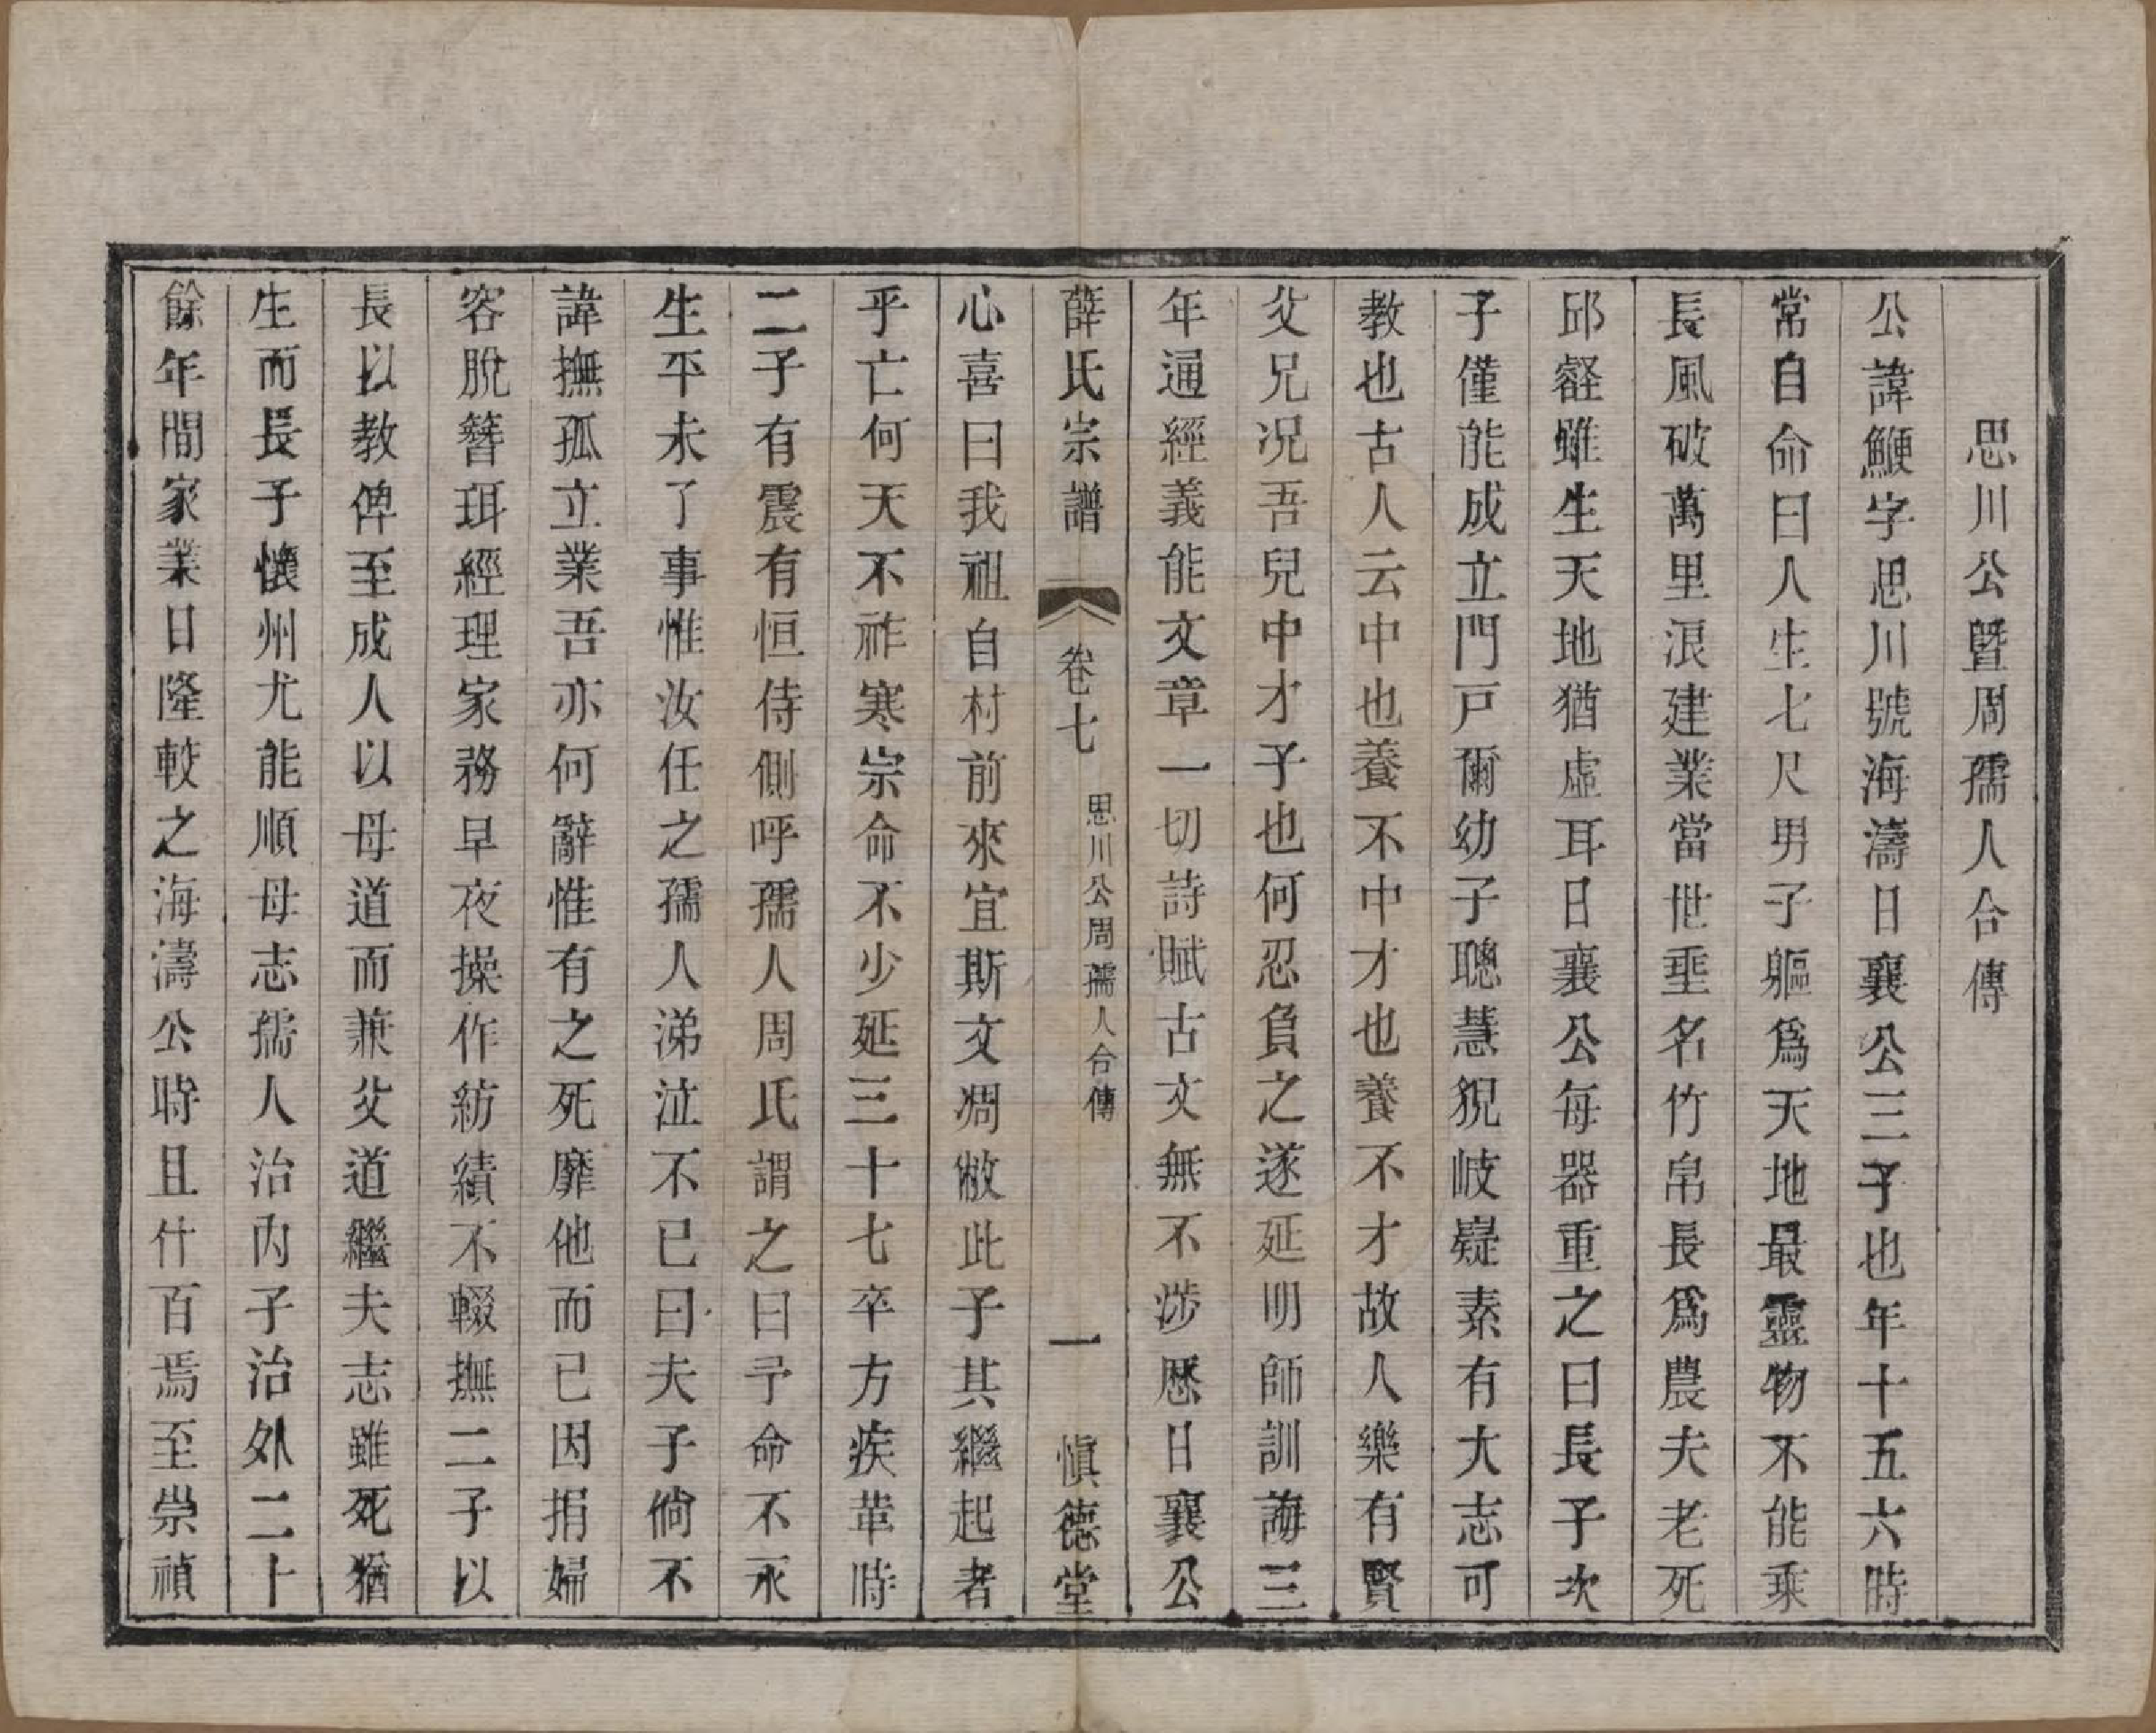 思川公曁周孺人合傳
公諱鯾字思川號海濤日襄公三子也年十五六時
常自命曰人生七尺男子軀爲天地最靈物不能乘
長風破萬里浪建業當世垂名竹帛長爲農夫老死
邱壑雖生天地猶虛耳日襄公每器重之曰長子次
子僅能成立門戸爾幼子聰慧猊岐嶷素有大志可
教也古人云中也養不中才也養不才故人樂有賢
父兄況吾兒中才子也何忍負之遂延明師訓誨三
年通經義能文章一切詩賦古文無不涉歷日襄公
薛氏宗譜 卷七 思川公周孺人合傳 一 慎德堂
心喜曰我祖自村前來宜斯文凋敝此子其繼起者
乎亡何天不祚寒宗命不少延三十七卒方疾革時
二子有震有恒侍側呼孺人周氏謂之曰予命不永
生平未了事惟汝任之孺人涕泣不已曰夫子倘不
諱撫孤立業吾亦何辭惟有之死靡他而已因捐婦
容脫簪珥經理家務早夜操作紡績不輟撫二子以
長以教俾至成人以母道而兼父道繼夫志雖死猶
生而長子懷州尤能順母志孺人治內子治外二十
餘年間家業日隆較之海濤公時且什百焉至崇禎